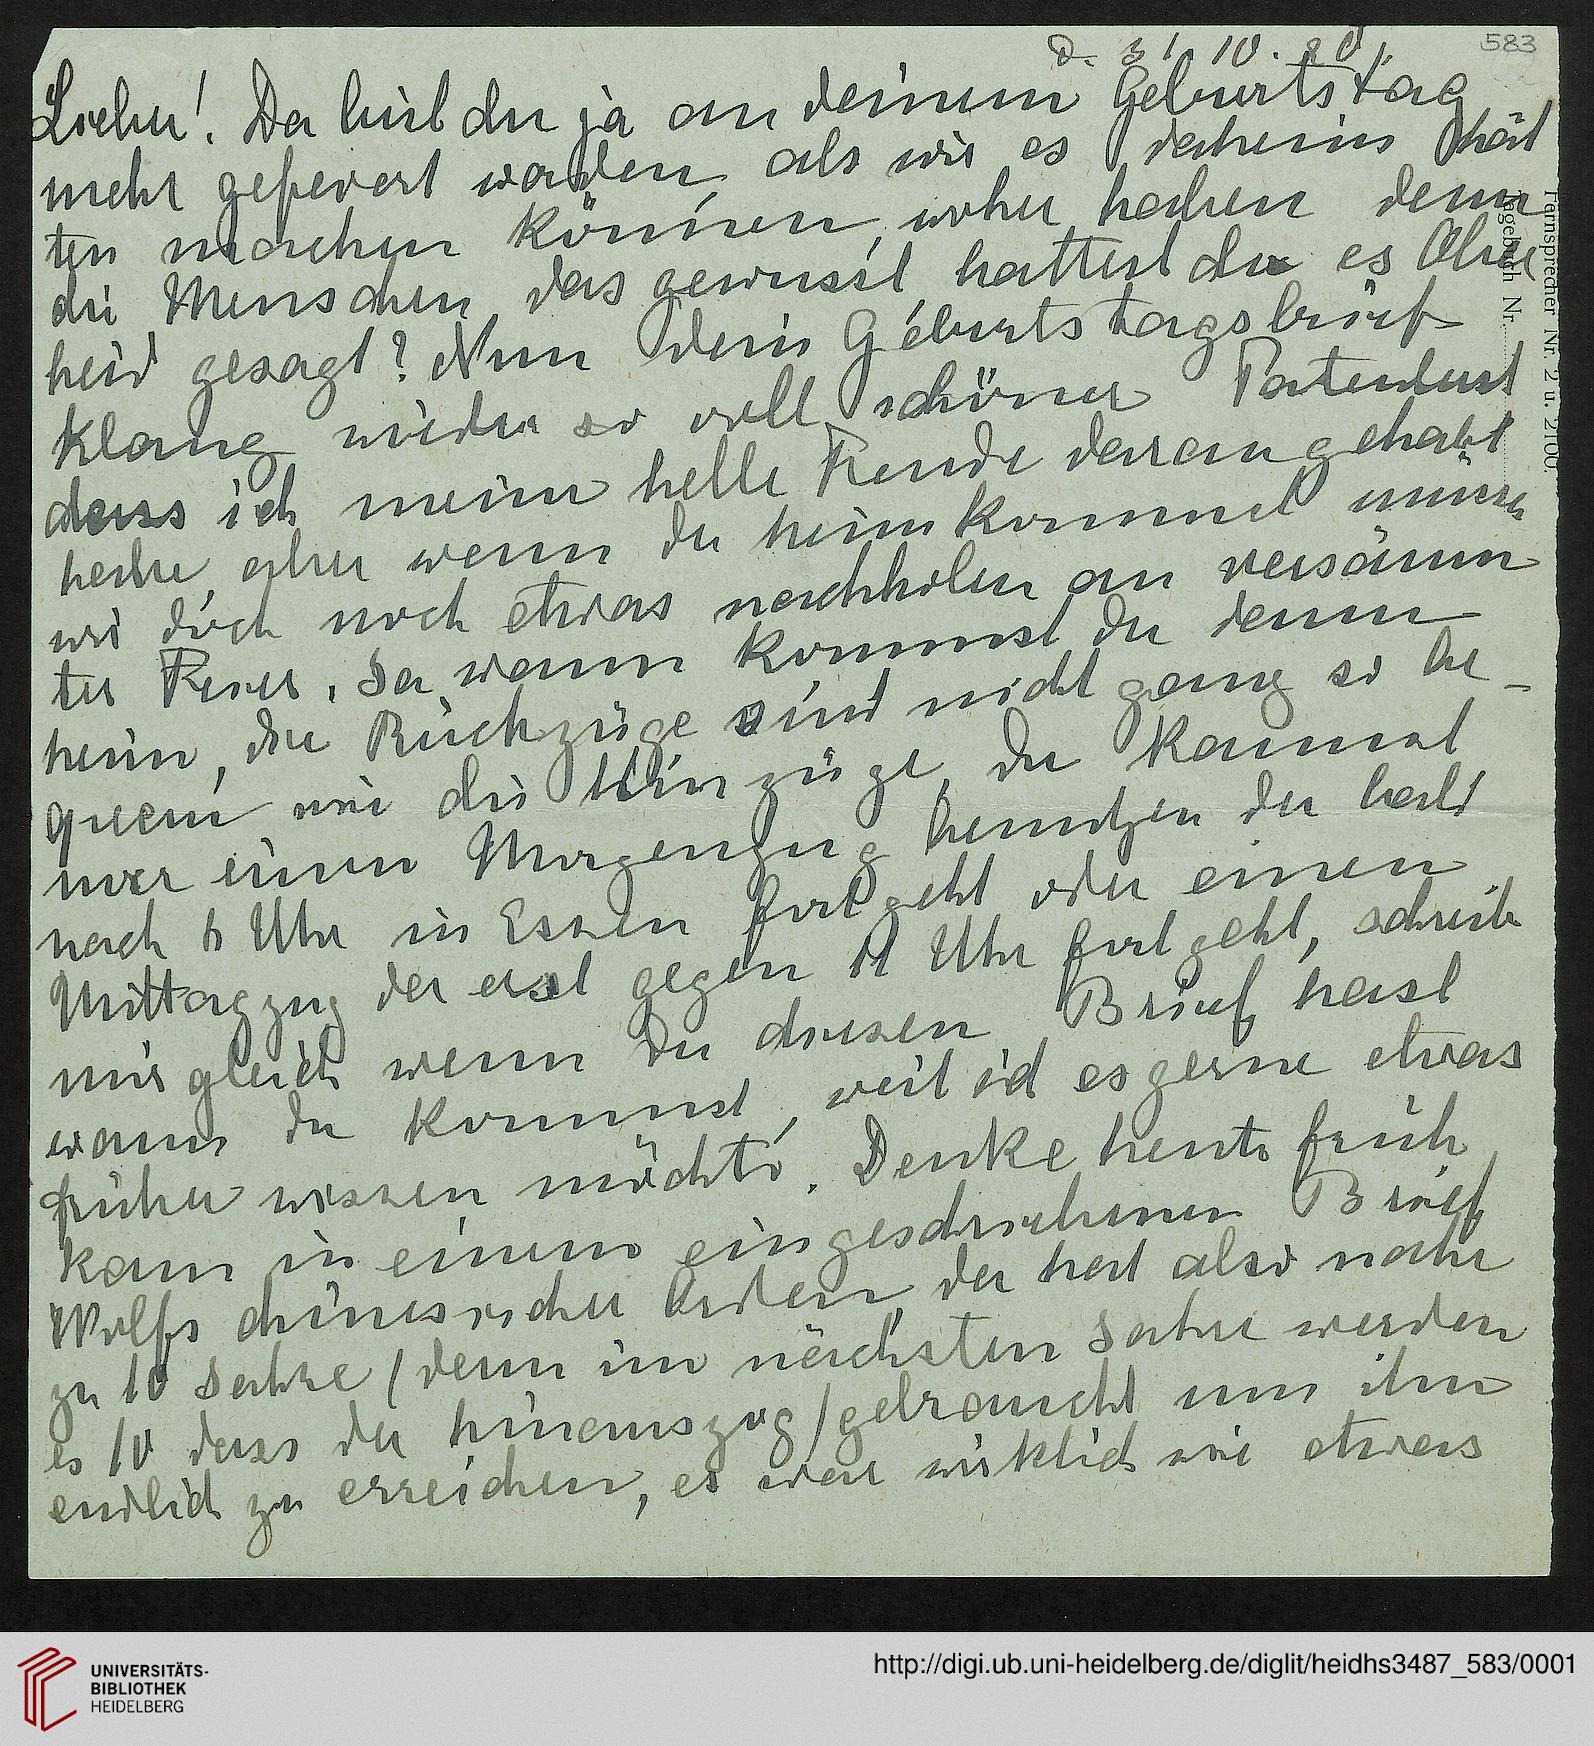 583
d. 31. 10. 20.
Lieber! Da bist du ja an deinem Geburtstag
mehr gefeiert worden als wir es daheim hät
ten machen können, woher haben denn
die Menschen das gewusst hattest du es Ohn
heid gesagt? Nun dein Geburtstagsbrief
klang wieder so voll schöner Tatenlust
dass ich meine helle Freude daran gehabt
habe, aber wenn du heimkommst müssen
wir doch noch etwas nachholen an versäum
ter Feier. Ja wann kommst du denn
heim, die Rückzüge sind nicht ganz so be-
quem wie die Hinzüge, du kannst
nur einen Morgenzug benutzen der bald
nach 6 Uhr in Essen fortgeht oder einen
Mittagzug der erst gegen 11 Uhr fortgeht, schreib
mir gleich wenn du diesen Brief hast
wann du kommst, weil ich es gerne etwas
früher wissen möchte. Denke heute früh
kam in einem eingeschriebenen Brief
Wolfs chinesischer Orden, der hat also nahe
zu 10 Jahre (denn im nächsten Jahre werden
es 10 dass er hinauszog) gebraucht um ihn
endlich zu erreichen, es war wirklich wie etwas
Fernsprecher Nr. 2 u. 2100.
Tagebuch Nr.
UNIVERSITÄTS-
BIBLIOTHEK
HEIDELBERG
http://digi.ub.uni-heidelberg.de/diglit/heidhs3487_583/0001